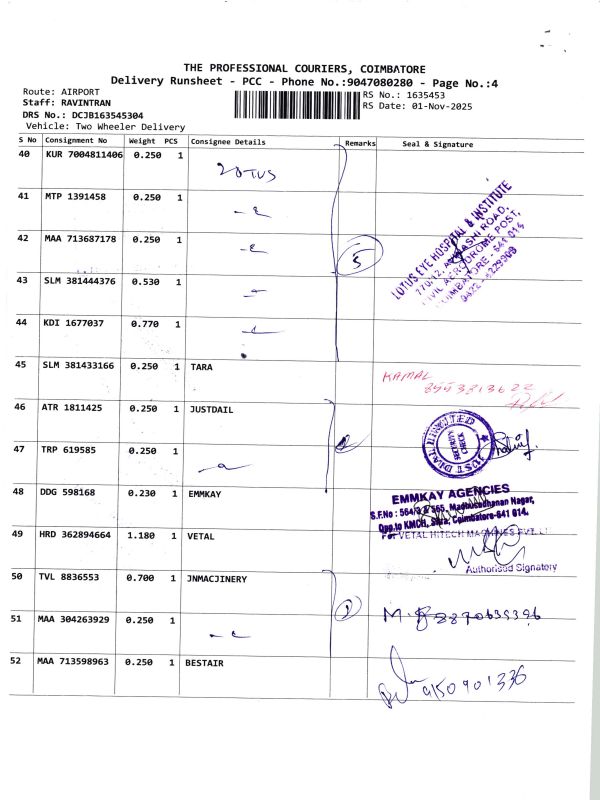 THE PROFESSIONAL COURIERS, COIMBATORE
Delivery Runsheet - PCC - Phone No.:9047080280 - Page No.:4
Route: AIRPORT
RS No.: 1635453
Staff: RAVINTRAN
RS Date: 01-Nov-2025
DRS No.: DCJB163545304
Vehicle: Two Wheeler Delivery
S No Consignment No Weight PCS Consignee Details Remarks Seal & Signature
40 KUR 7004811406 0.250 1
LOTUS
41 MTP 1391458 0.250 1
42 MAA 713687178 0.250 1
5
LOTUS EYE HOSPITAL & INSTITUTE
770/12, AVINASHI ROAD,
CIVIL AERODROME POST,
COIMBATORE - 641 014
0422 - 4229900
43 SLM 381444376 0.530 1
44 KDI 1677037 0.770 1
45 SLM 381433166 0.250 1 TARA
KAMAL
46 ATR 1811425 0.250 1 JUSTDAIL
2
JUST DIAL LIMITED
SECURITY
CHECK
47 TRP 619585 0.250 1
48 DDG 598168 0.230 1 EMMKAY
EMMKAY AGENCIES
Opp.to KMCH, Sitra, Coimbatore-641 014.
49 HRD 362894664 1.180 1 VETAL
For VETAL HITECH MACHINES PVT. LTD
Authorised Signatory
50 TVL 8836553 0.700 1 JNMACJINERY
51 MAA 304263929 0.250 1
52 MAA 713598963 0.250 1 BESTAIR
9150901336